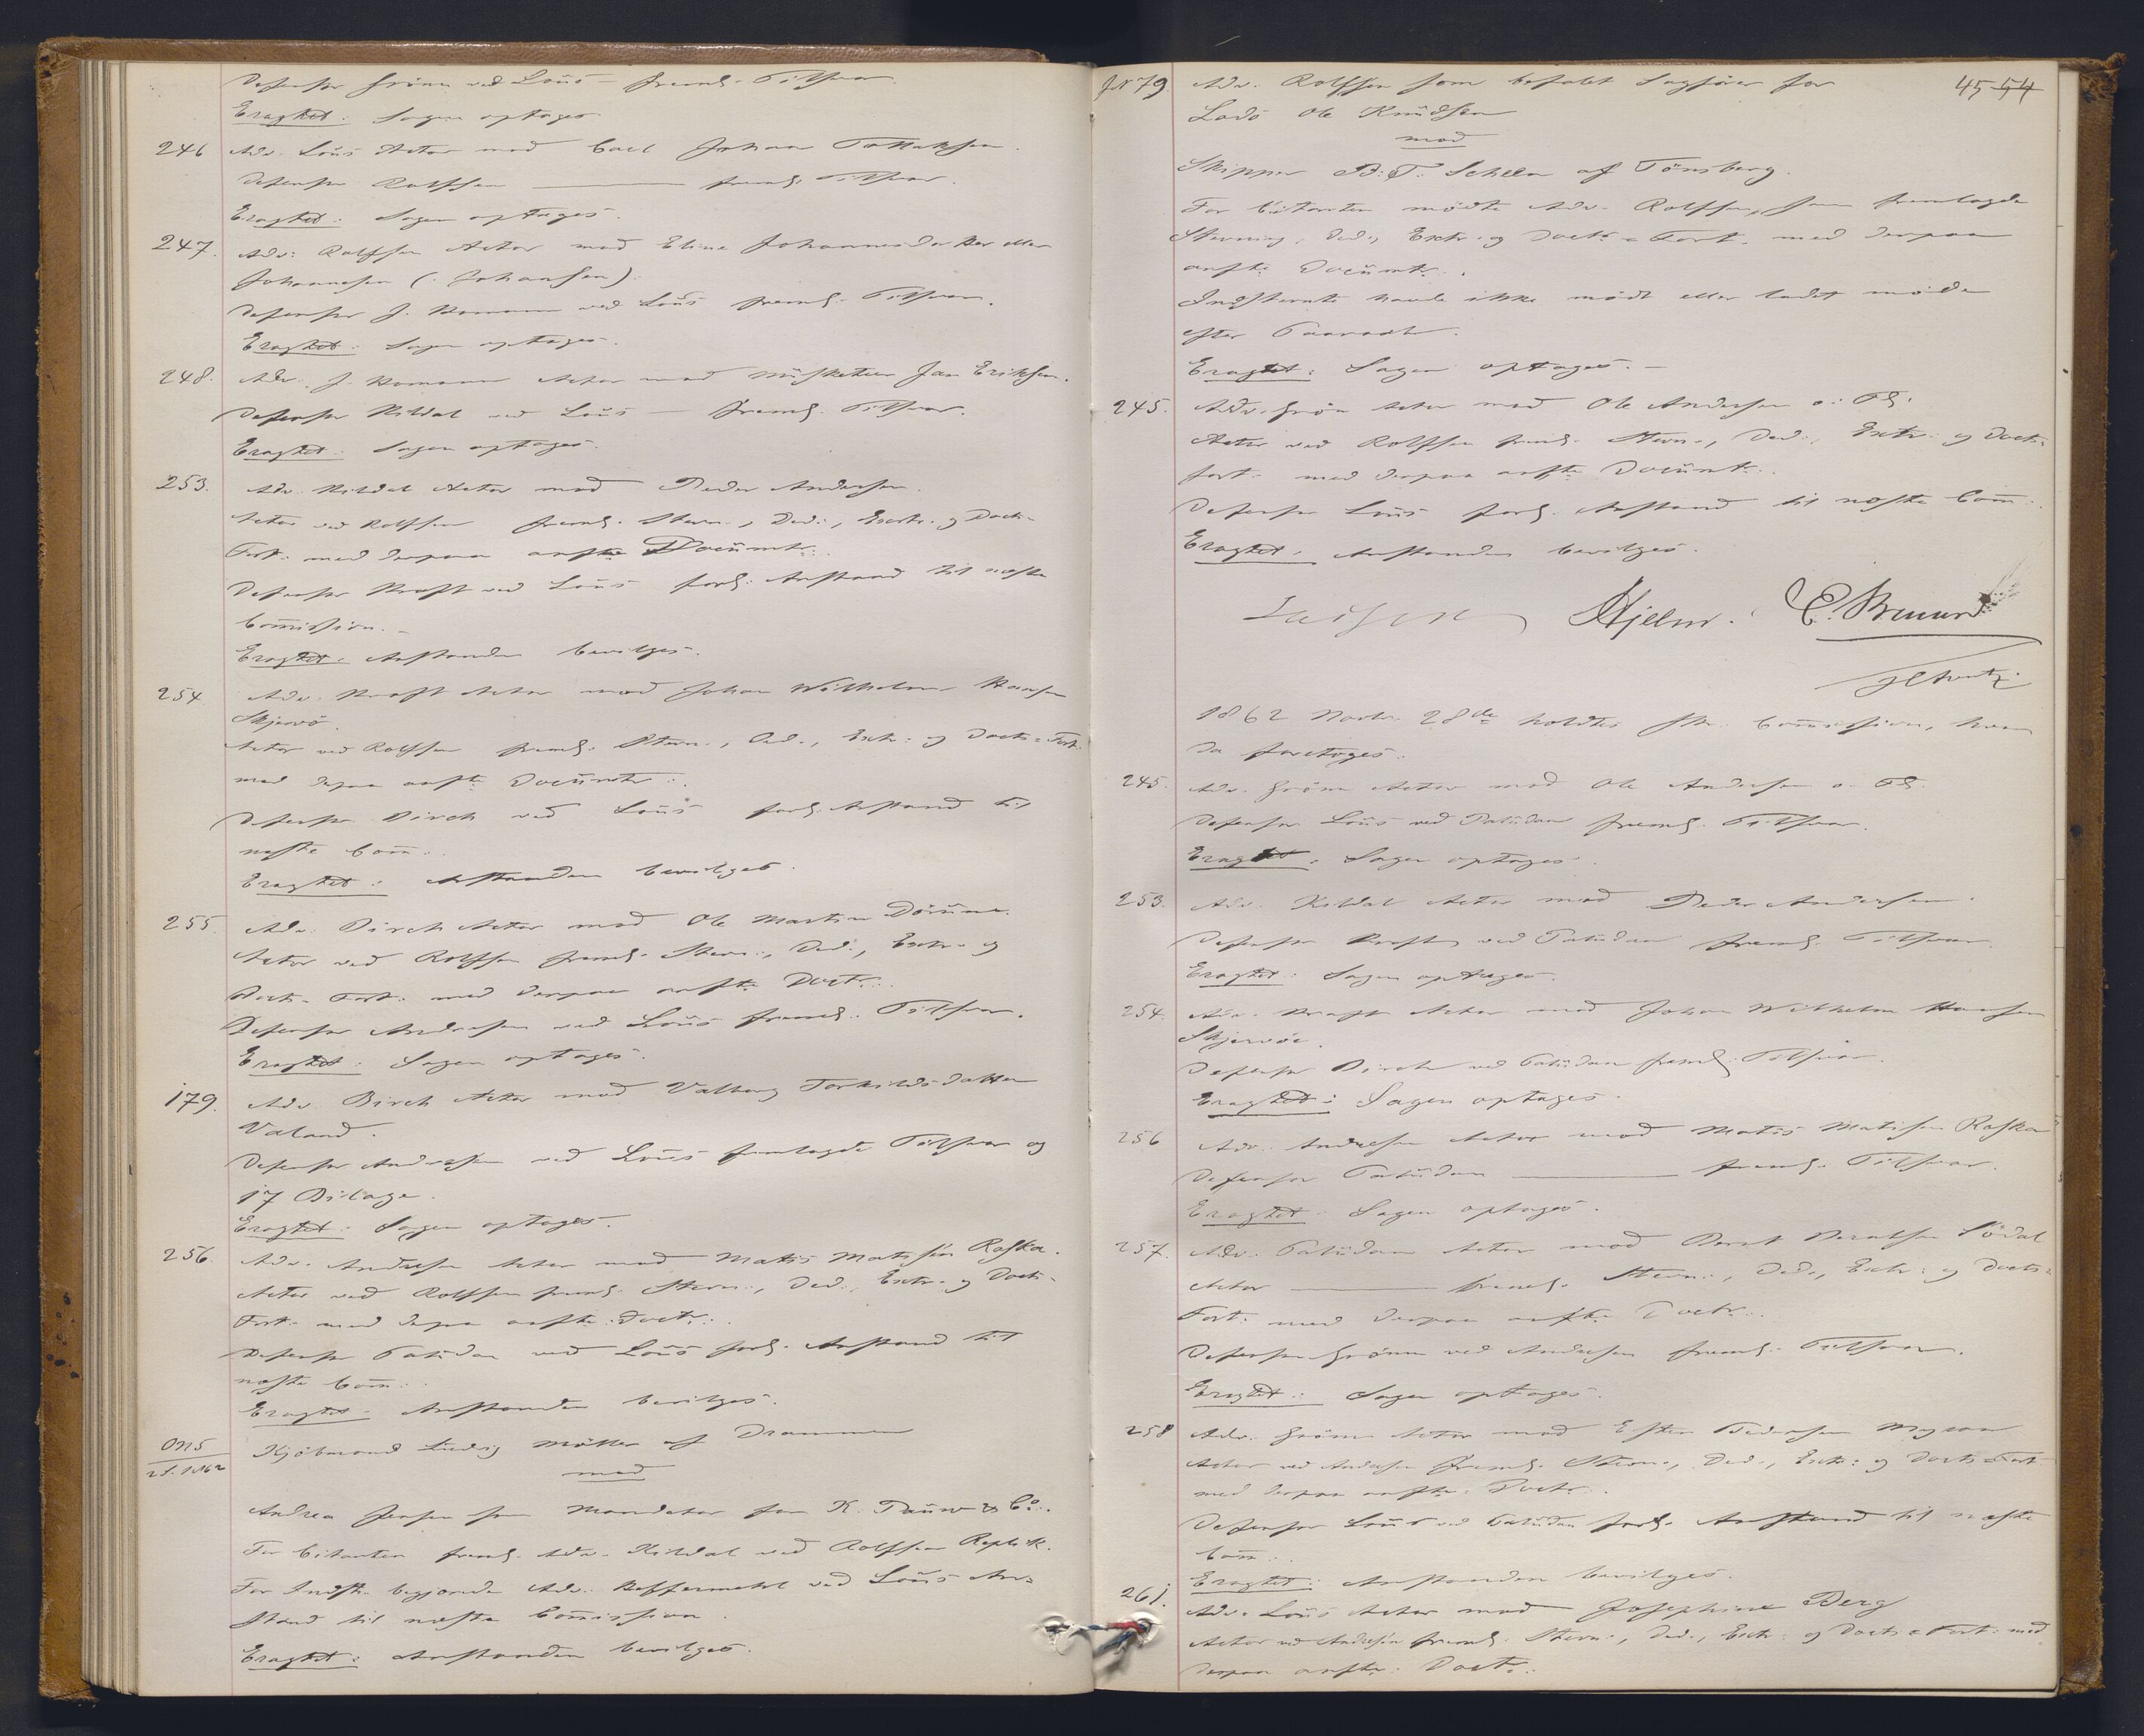 Defensor Grönn ved Loüs – freml. Tilsvar.
Eragtet: Sagen optages.
246 Adv. Loüs Actor mod Carl Johan
Defensor Rolfsen — freml. Tilsvar.
Eragtet: Sagen optages.
247. Adv: Rolfsen Actor mod Eline Johannesdatter eller
Johannesen (: Johansen).
Defensor J. Homann ved Loüs freml. Tilsvar.
Eragtet: Sagen optages.
248. Adv. J. Homann Actor mod Müsketeer Jan Eriksen.
Defensor Kildal ved Loüs – freml. Tilsvar.
Eragtet: Sagen optages.
253. Adv. Kildal Actor mod Peder Andersen.
Actor ved Rolfsen freml. Stevn., Ded., Extr. og Docts-
Fort. med derpaa anførte Documtr.
Defensor Kraft ved Loüs forl. Anstand til næste
Commission. –
Eragtet: Anstanden bevilges.
254 Adv. Kraft Actor mod Johan Wilhelm Hansen
Skjervö.
Actor ved Rolfsen freml. Stevn., Ded., Extr. og Docts-Fort.
med derpaa anførte Documtr.
Defensor Birch ved Loüs forl. Anstand til
næste Comm.
Eragtet: Anstanden bevilges.
255. Adv. Birch Actor mod Ole Martin
Actor ved Rolfsen freml. Stevn., Ded., Extr. og
Docts-Fort. med derpaa anførte Doctr.
Defensor Andresen ved Loüs freml. Tilsvar.
Eragtet: Sagen optages.
179. Adv. Birch Actor mod Valborg Torkildsdatter
Valand.
Defensor Andresen ved Loüs fremlagde Tilsvar og
17 Bilage.
Eragtet: Sagen optages.
256. Adv. Andresen Actor mod Matis Matisen Raska.
Actor ved Rolfsen freml. Stevn., Ded., Extr. og Docts-
Fort. med derpaa anførte Doctr.
Defensor Palüdan ved Loüs forl. Anstand til
næste Comm.
Eragtet: Anstanden bevilges.
Kjöbmand Lüdvig Möller af Drammen
mod
Andrea Jensen som Mandatar for K. & Co.
For Citanten freml. Adv. Kildal ved Rolfsen Replik.
For Indst. begjærede Adv. ved Loüs An-
stand til næste Commission.
Eragtet: Anstanden bevilges.
45 54
No 79. Adv. Rolfsen som befalet Sagfører for
Lods Ole Knüdsen
mod
Skipper B. T. af Tönsberg.
For Citanten mödte Adv. Rolfsen, som fremlagde
Stevning, Ded., Extr. og Docts-Fort. med derpaa
anførte Documtr.
Indstevnte havde ikke mödt eller ladet möde
efter Paaraab.
Eragtet: Sagen optages. –
245. Adv. Grön Actor mod Ole Andersen o. Fl.
Actor ved Rolfsen freml. Stevn., Ded., Extr. og Docts-
fort. med derpaa anførte Documtr.
Defensor Loüs forl. Anstand til næste Comm.
Eragtet: Anstanden bevilges.
Hjelm.
1862 Novbr. 28de holdtes Commission, hvor
da foretoges:
245. Adv. Grönn Actor mod Ole Andersen o. Fl.
Defensor Loüs ved Palüdan freml. Tilsvar.
Eragtet: Sagen optages.
253. Adv. Kildal Actor mod Peder Andersen.
Defensor Kraft ved Palüdan freml. Tilsvar.
Eragtet: Sagen optages.
254. Adv. Kraft Actor mod Johan Wilhelm Hansen
Skjervöe.
Defensor Birch ved Palüdan freml. Tilsvar.
Eragtet: Sagen optages.
256 Adv. Andresen Actor mod Matis Matisen Raska
Defensor Palüdan — freml. Tilsvar.
Eragtet: Sagen optages.
257. Adv. Palüdan Actor mod Södal
Actor — freml. Stevn., Ded., Extr. og Docts-
Fort. med derpaa anførte Doctr.
Defensor Grönn ved Andresen freml. Tilsvar.
Eragtet: Sagen optages.
258 Adv. Grönn Actor mod Pedersen
Actor ved Andresen freml. Stevn., Ded., Extr. og Docts-Fort
med derpaa anførte Doctr.
Defensor Loüs ved Palüdan forl. Anstand til næste
Comm.
Eragtet: Anstanden bevilges.
261. Adv. Loüs Actor mod Josephine Berg
Actor ved Andresen freml. Stevn., Ded., Extr. og Docts-Fort. med
derpaa anførte Doctr.